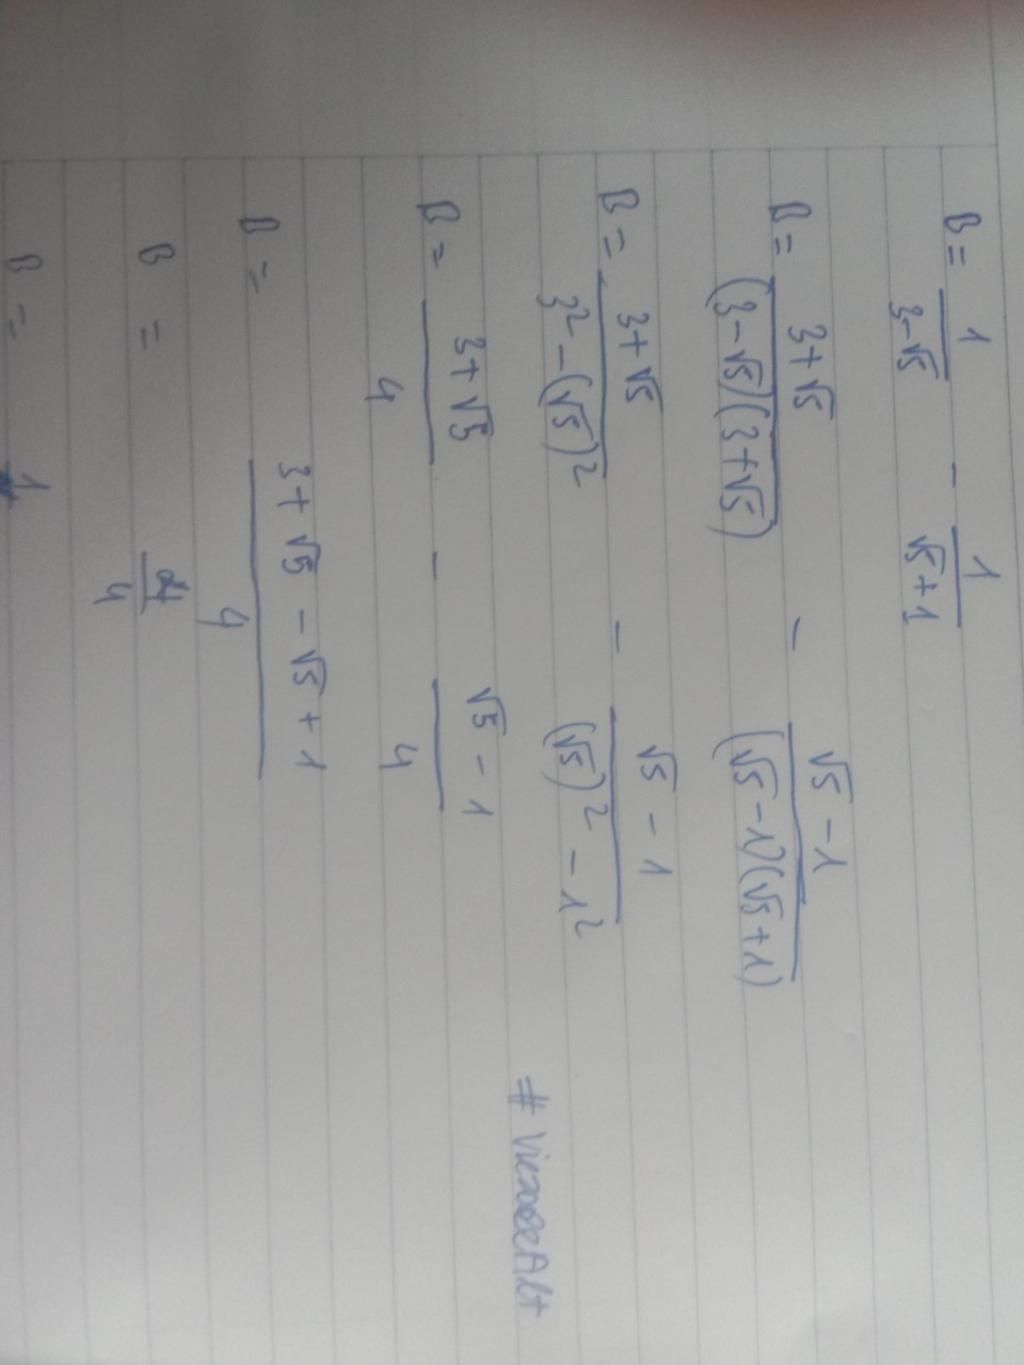 B = 1/(3-√5) - 1/(√5+1)
B = (3+√5)/((3-√5)(3+√5)) - (√5-1)/((√5-1)(√5+1))
B = (3+√5)/(3²-(√5)²) - (√5-1)/((√5)²-1²)
B = (3+√5)/4 - (√5-1)/4
B = (3+√5-√5+1)/4
B = 4/4
B = 1